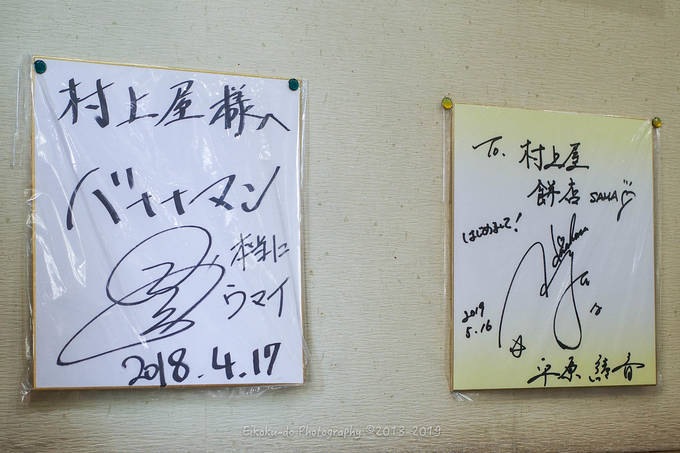 村上屋様へ
バナナマン
本当に
ウマイ
2018.4.17
To. 村上屋
餅店 SAMA♡
はじめまして!
2019
5.16
平原綾香
Eikoku-do Photography ©2013-2019